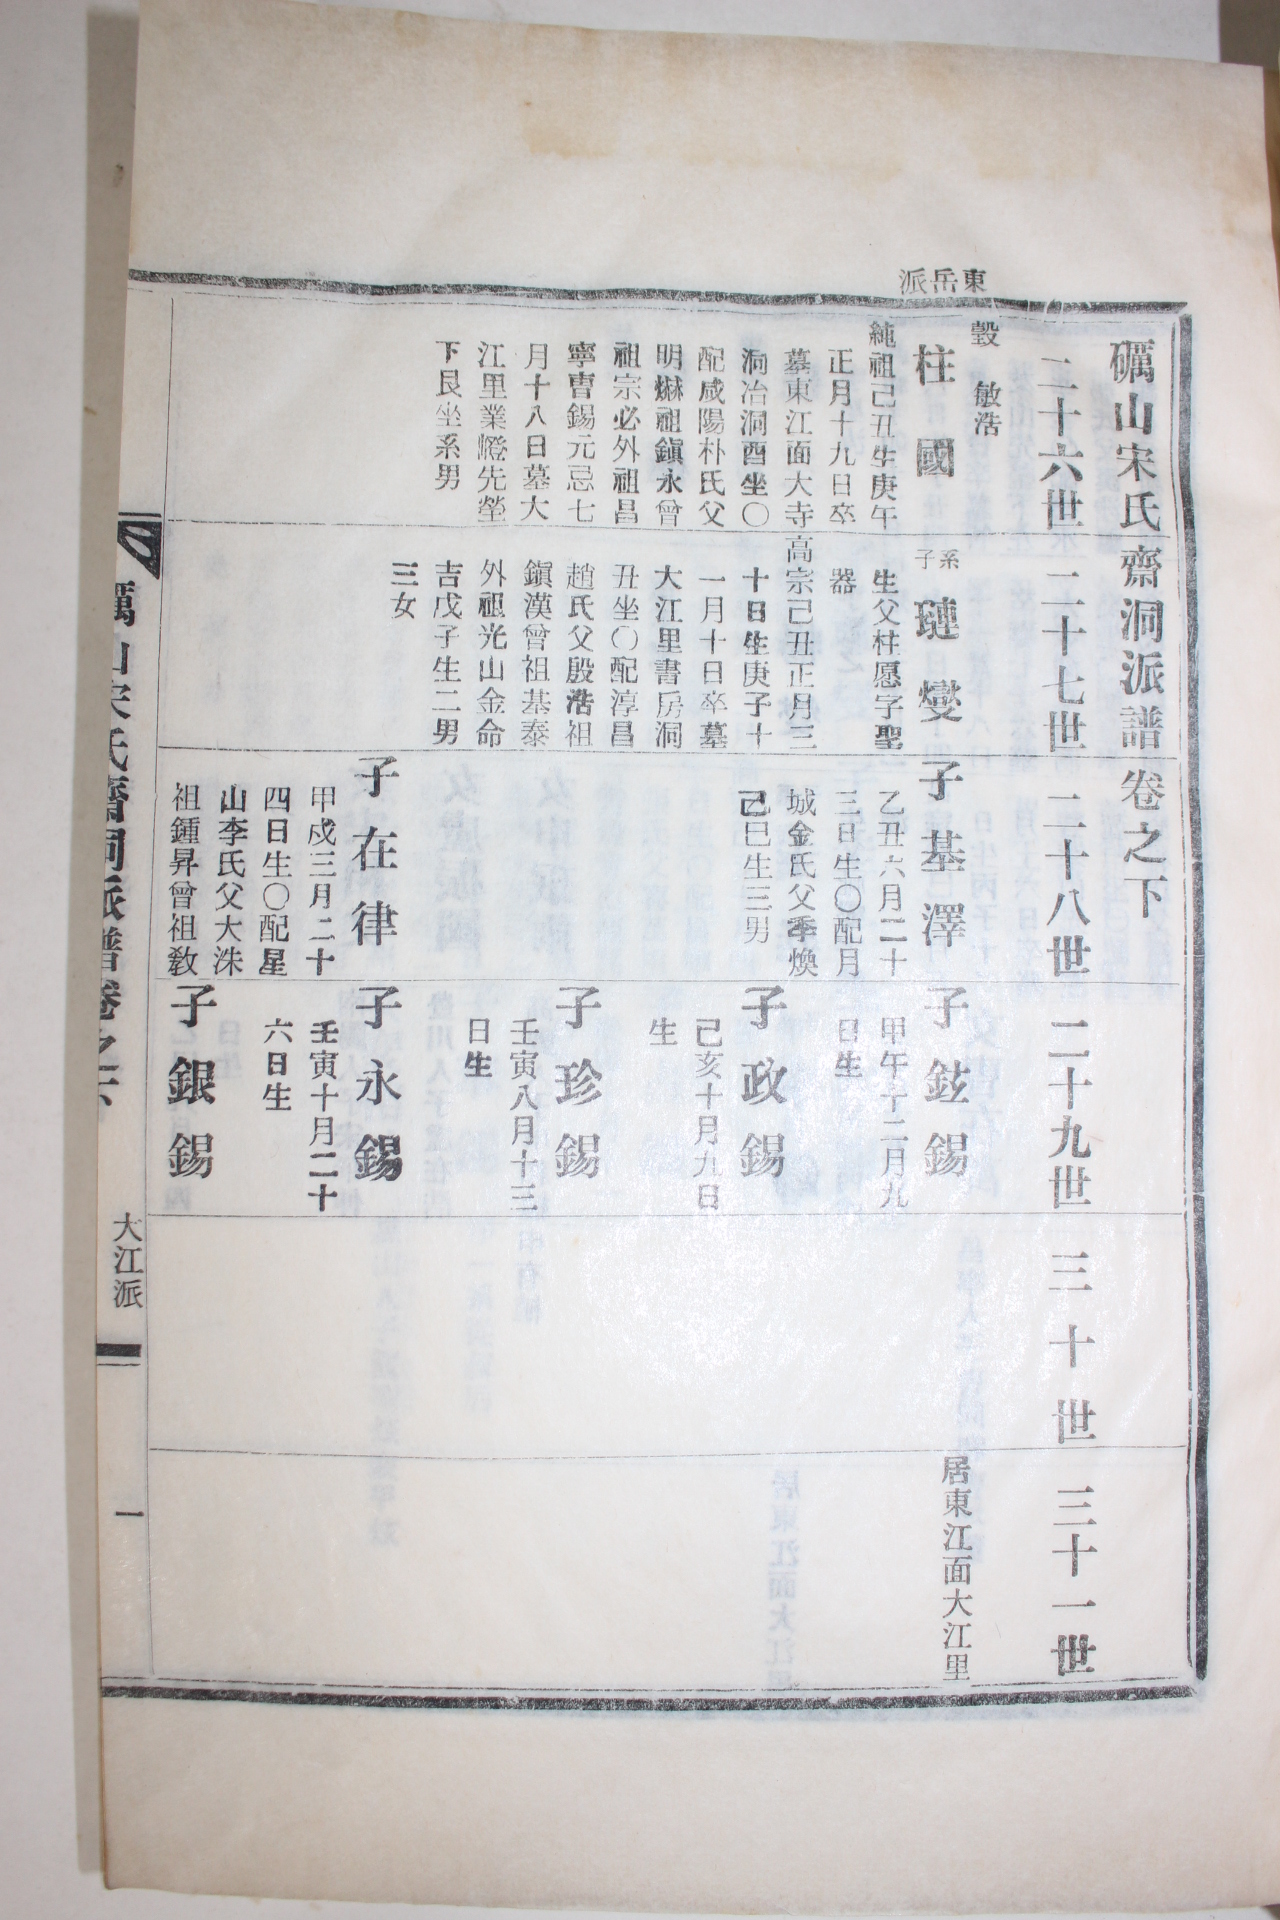 東岳派
礪山宋氏齋洞派譜卷之下
二十六世
二十七世
二十八世
二十九世
三十世
三十一世
瑴
敏浩
柱國
純祖己丑生庚午
正月十九日卒
墓東江面大寺
洞冶洞酉坐〇
配咸陽朴氏父
明爀祖鎭永曾
祖宗必外祖昌
寧曺錫元忌七
月十八日墓大
江里業燈先塋
下艮坐系男
系子
璉燮
生父柱愿字聖
器
高宗己丑正月三
十日生庚子十
一月十日卒墓
大江里書房洞
丑坐〇配淳昌
趙氏父殷浩祖
鎭漢曾祖基泰
外祖光山金命
吉戊子生二男
三女
子基澤
乙丑六月二十
三日生〇配月
城金氏父季煥
己巳生三男
子在律
甲戌三月二十
四日生〇配星
山李氏父大洙
祖鍾昇曾祖敎
子鉉錫
甲午十二月九
日生
子政錫
己亥十月九日
生
子珍錫
壬寅八月十三
日生
子永錫
壬寅十月二十
六日生
子銀錫
居東江面大江里
礪山宋氏齋洞派譜卷之下
大江派
一